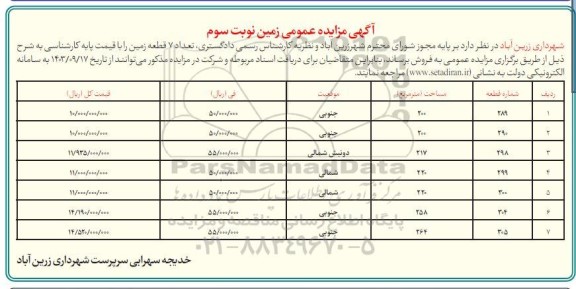 آگهی مزایده عمومی زمین نوبت سوم
شهرداری زرین آباد در نظر دارد بر پایه مجوز شورای محترم شهر زرین آباد و نظریه کارشناس رسمی دادگستری، تعداد ۷ قطعه زمین را با قیمت پایه کارشناسی به شرح
ذیل از طریق برگزاری مزایده عمومی به فروش برساند، بنابراین متقاضیان برای دریافت اسناد مربوطه و شرکت در مزایده مذکور می‌توانند از تاریخ ۱۴۰۳/۰۹/۱۷ به سامانه
الکترونیکی دولت به نشانی (www.setadiran.ir) مراجعه نمایند.
ردیف شماره قطعه مساحت (مترمربع) موقعیت فی (ریال) قیمت کل (ریال)
۱ ۲۸۹ ۲۰۰ جنوبی ۵۰/۰۰۰/۰۰۰ ۱۰/۰۰۰/۰۰۰/۰۰۰
۲ ۲۹۰ ۲۰۰ جنوبی ۵۰/۰۰۰/۰۰۰ ۱۰/۰۰۰/۰۰۰/۰۰۰
۳ ۲۹۸ ۲۱۷ دونبش شمالی ۵۵/۰۰۰/۰۰۰ ۱۱/۹۳۵/۰۰۰/۰۰۰
۴ ۲۹۹ ۲۲۰ شمالی ۵۰/۰۰۰/۰۰۰ ۱۱/۰۰۰/۰۰۰/۰۰۰
۵ ۳۰۰ ۲۲۰ شمالی ۵۰/۰۰۰/۰۰۰ ۱۱/۰۰۰/۰۰۰/۰۰۰
۶ ۳۰۴ ۲۵۸ جنوبی ۵۵/۰۰۰/۰۰۰ ۱۴/۱۹۰/۰۰۰/۰۰۰
۷ ۳۰۵ ۲۶۴ جنوبی ۵۵/۰۰۰/۰۰۰ ۱۴/۵۲۰/۰۰۰/۰۰۰
ParsNamadData
پایگاه اطلاع رسانی مناقصه و مزایده
۰۲۱-۸۸۳۴۹۶۷۰-۵
خدیجه سهرابی سرپرست شهرداری زرین آباد